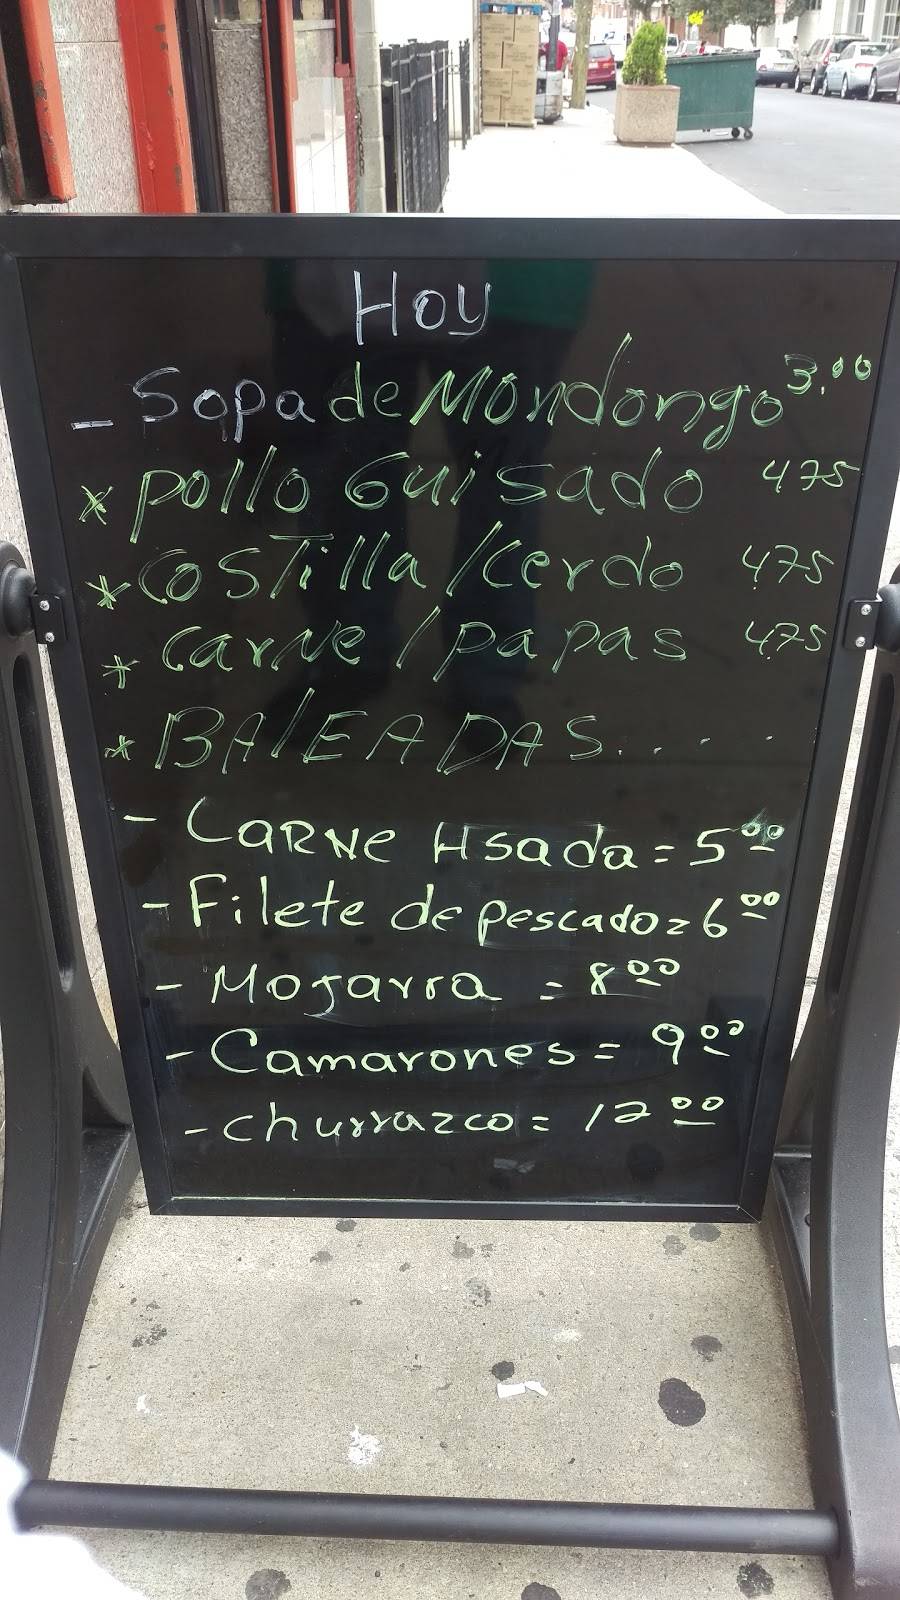 Hoy
- Sopa de Mondongo 3.00
* Pollo Guisado 4.75
* Costilla/Cerdo 4.75
* Carne/papas 4.75
* BAlEADAS.....
- CARNe Asada = 5 00
- Filete de pescado = 6 00
- Mojarra = 8 00
- Camarones = 9 00
- churrazco = 12 00